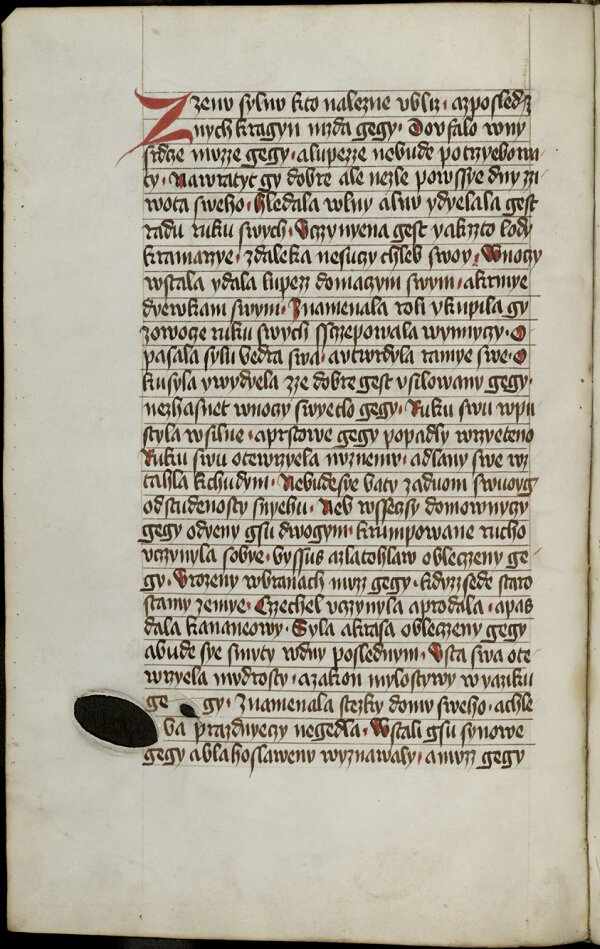 Zzenu sylnu kto nalezne vbliz · azposledz
nych kragyn mzda gegy · Douffalo wny
srdcze muzze gegy · alupezze nebude potrzyebowa
ty · Nawratyt gy dobre ale nezle powssye dny zzi
wota sweho · hledala wlny alnu ydyelala gest
radu ruku swych · Vczynyena gest yakzto lody
kramarzye · zdaleka nesuczy chleb swoy · Wnoczy
wstala ydala lupezz domaczym swym · akrmye
dyewkam swym · Znamenala roli ykupila gy
zowocze ruku swych sstczepowala wynnyczy · O
pasala sylu bedra swa · autwrdyla ramye swe · O
kusyla ywydyela zze dobre gest vsilowany gegy ·
nezhasnet wnoczy swyetlo gegy · Ruku swu wpu
styla wsilne · aprstowe gegy popadly wrzyeteno
Ruku swu otewrzyela nuznemu · adlany swe wz
tahla kchudym · Nebudesye baty zaduom swuoyg
odstudenosty snyehu · Neb wssczsy domownyczy
gegy odyeny gsu dwogym · krumpowane rucho
vczynyla sobye · byssus azlatohlaw obleczeny ge
gy · Vrozeny wbranach muz gegy · kdyzsede staro
stamy zemye · Czechel vczynyla aprodala · apas
dala kananeowy · Syla akrasa obleczeny gegy
abude sye smyty wdny poslednym · Vsta swa ote
wrzyela mudrosty · azakon mylostywy w yaziku
ge gy · Znamenala stezky domu sweho · achle
ba prazdnyeczy negedla · Wstali gsu synowe
gegy ablahoslaweny wyznawaly · amuzz gegy